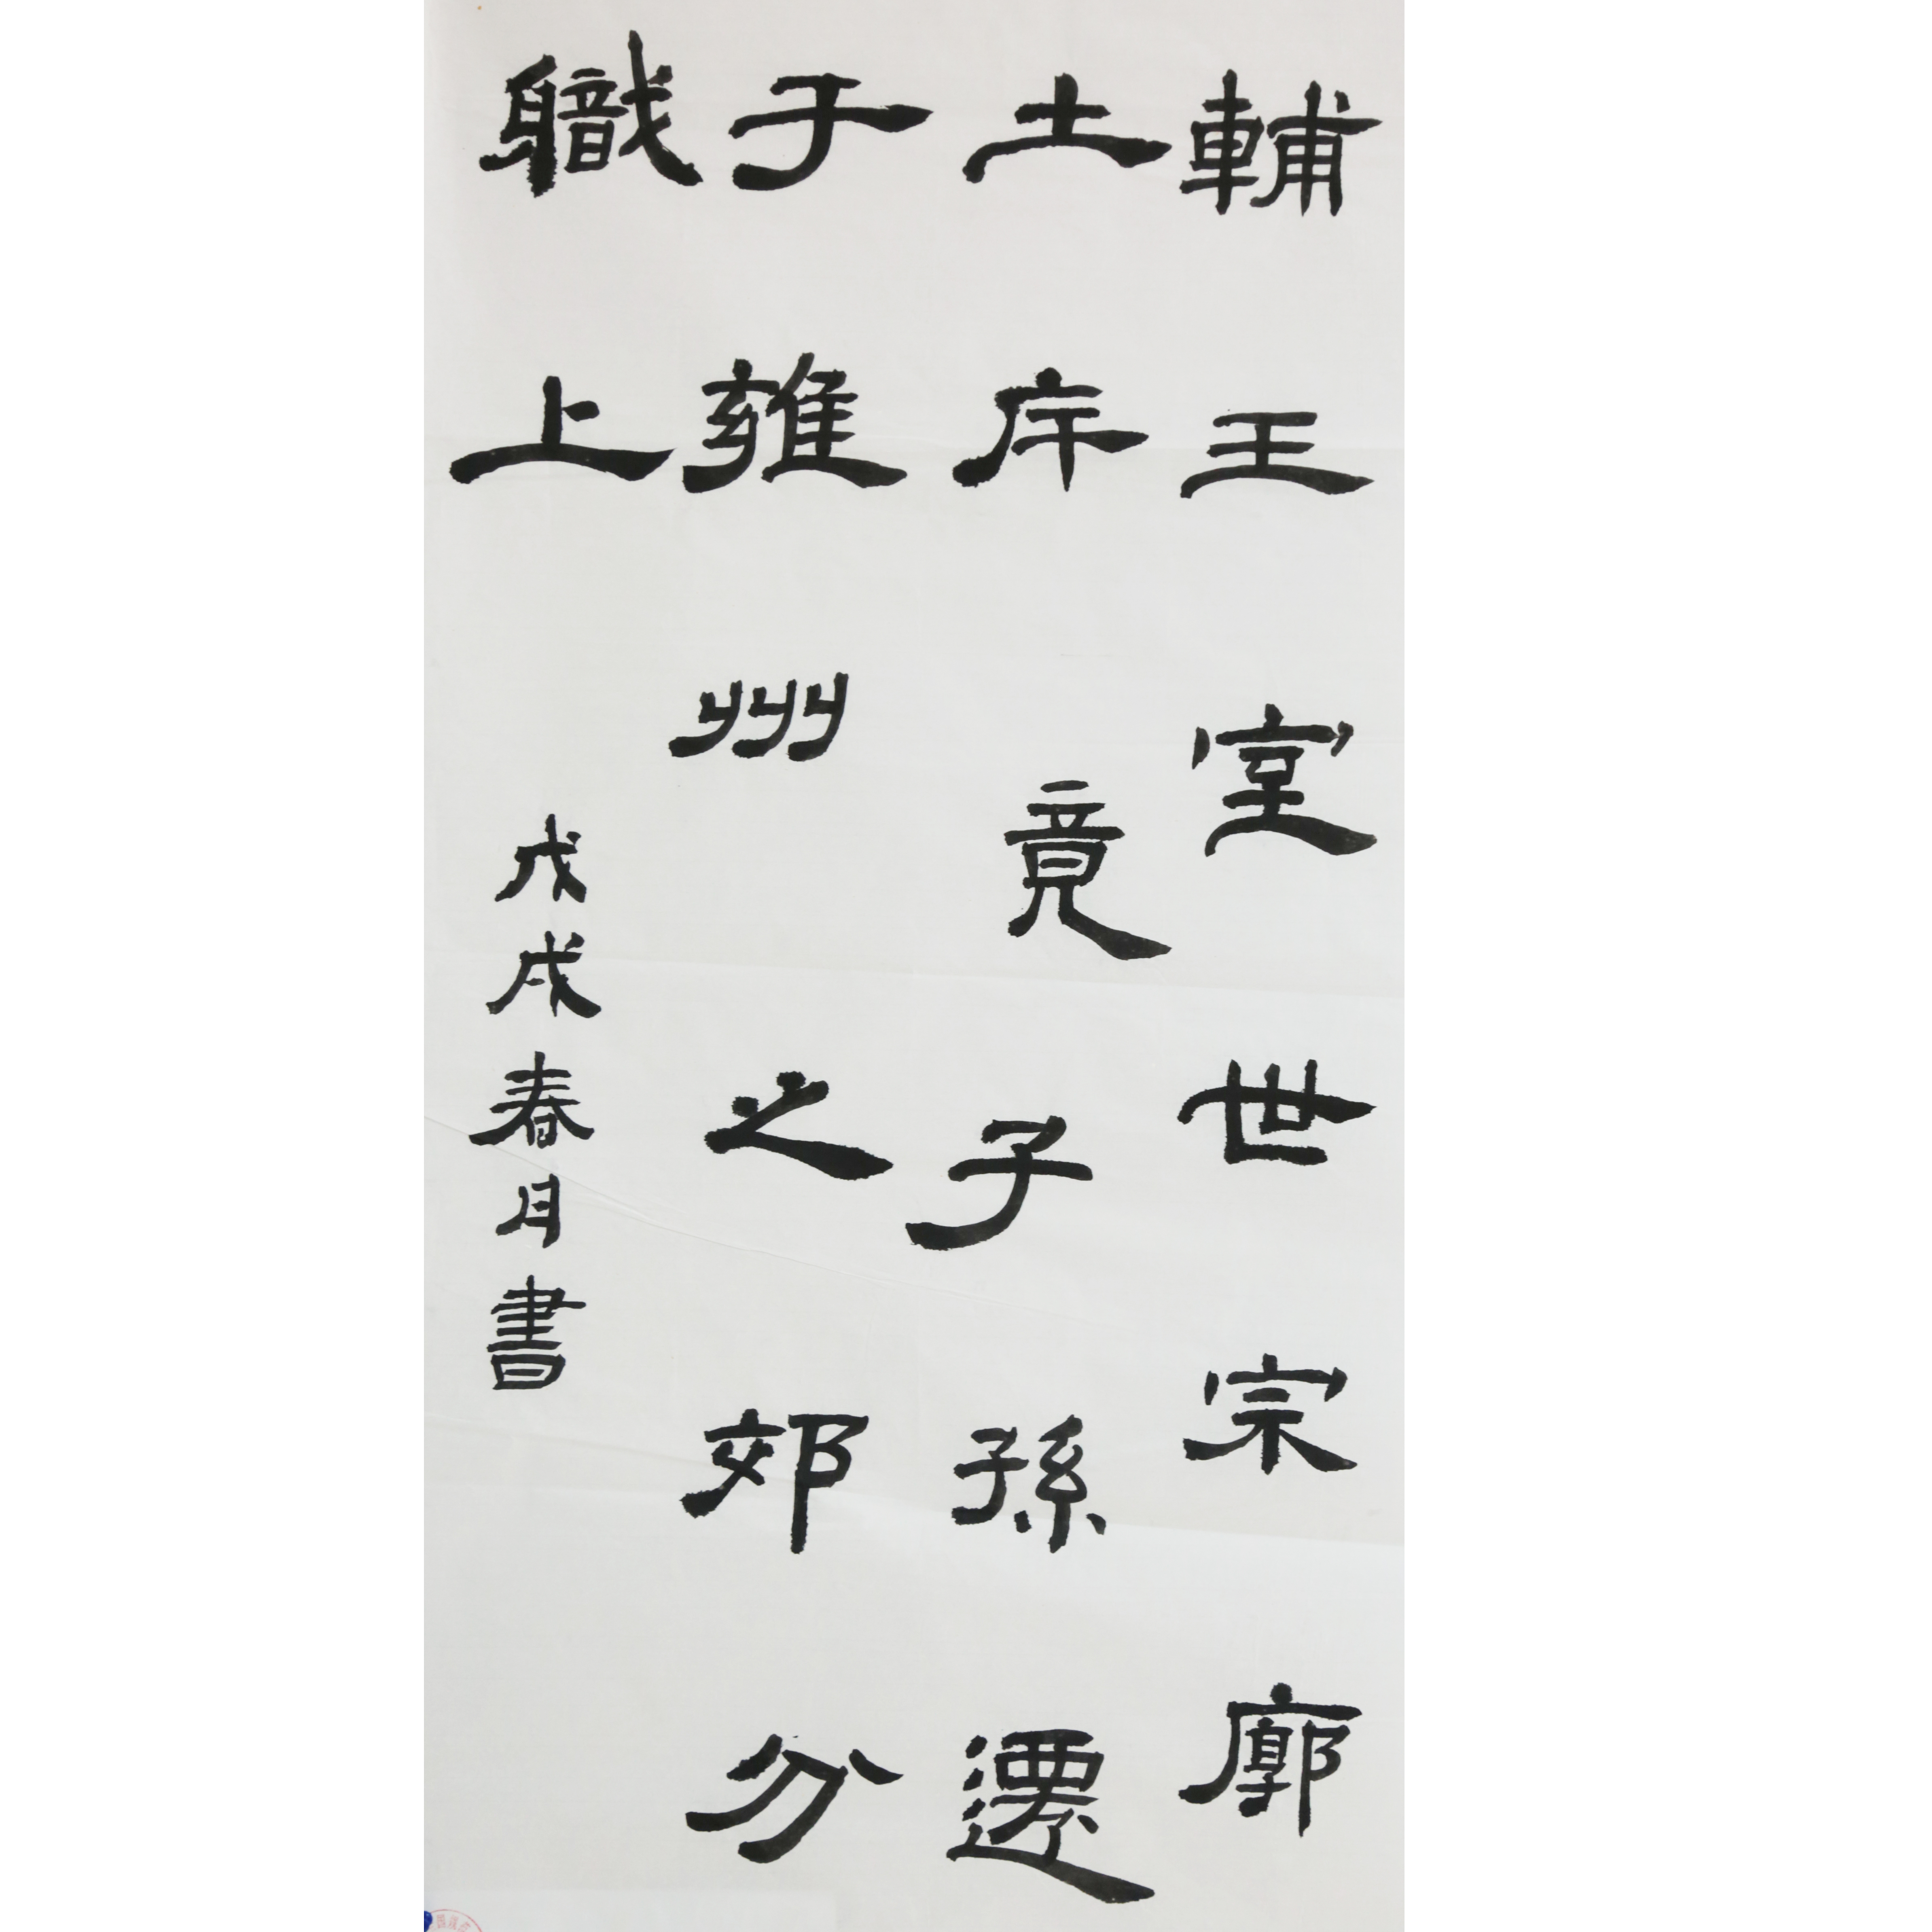 輔王室世宗廓
土斥竟子孫遷
于雍州之郊分
職上
戊戌春月書